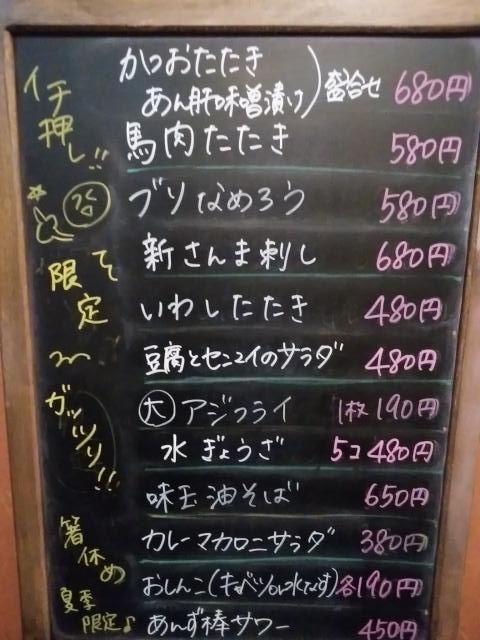 イチ押し!!
かつおたたき
あん肝味噌漬け 盛合せ 680円
馬肉たたき 580円
ブリなめろう 580円
新さんま刺し 680円
限定
いわしたたき 480円
豆腐とセンマイのサラダ 480円
ガッツリ!!
大 アジフライ 1枚 190円
水ぎょうざ 5コ 480円
味玉油そば 650円
箸休め
カレーマカロニサラダ 380円
おしんこ(キャベツor水なす) 各190円
夏季限定♪
あんず棒サワー 450円